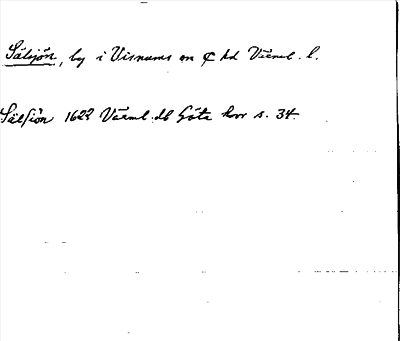 Sälsjön, by i Visnums sn ₵ hd Värml. l.
Sälsiön 1622 Värml. db Göta hovr s. 34.